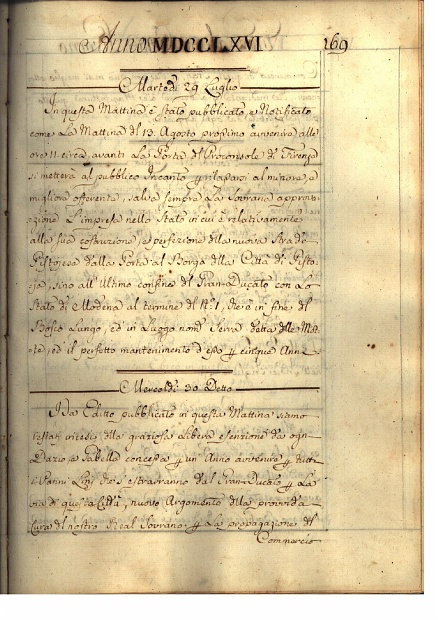 Anno MDCCLXVI 169
Martedì 29 Luglio
In questa Mattina è stato pubblicato, e Notificato
come La Mattina del 13 Agosto prossimo avvenire alle
ore 11 circa, avanti La Porta del Proconsole di Firenze
si metterà al pubblico Incanto al minore, e
migliore offerente, salva sempre La Sovrana approv-
azione L'impresa nello stato in cui è relativamente
alla sua costruzione, e perfezione della nuova Strada
Pistojese dalla Porta al Borgo della Città di Pisto-
ja, sino all'ultimo confine del Gran-Ducato con Lo
Stato di Modena al termine del N.° 1, che è in fine del
Bosco Lungo, ed in Luogo Serra detta delle Mot-
te, ed il perfetto mantenimento d'esso p cinque Anni
Mercoldì 30 Detto
Da Editto pubblicato in questa Mattina siamo
restati intesi della graziosa Libera esenzione da ogni
Dazio, e Gabella concessa p un Anno avvenire p tutti
i Panni Lini che s'estrarranno dal Gran-Ducato p La
via di questa Città, nuovo Argomento della provvida
Cura del nostro Real Sovrano p La propagazione del
Commercio